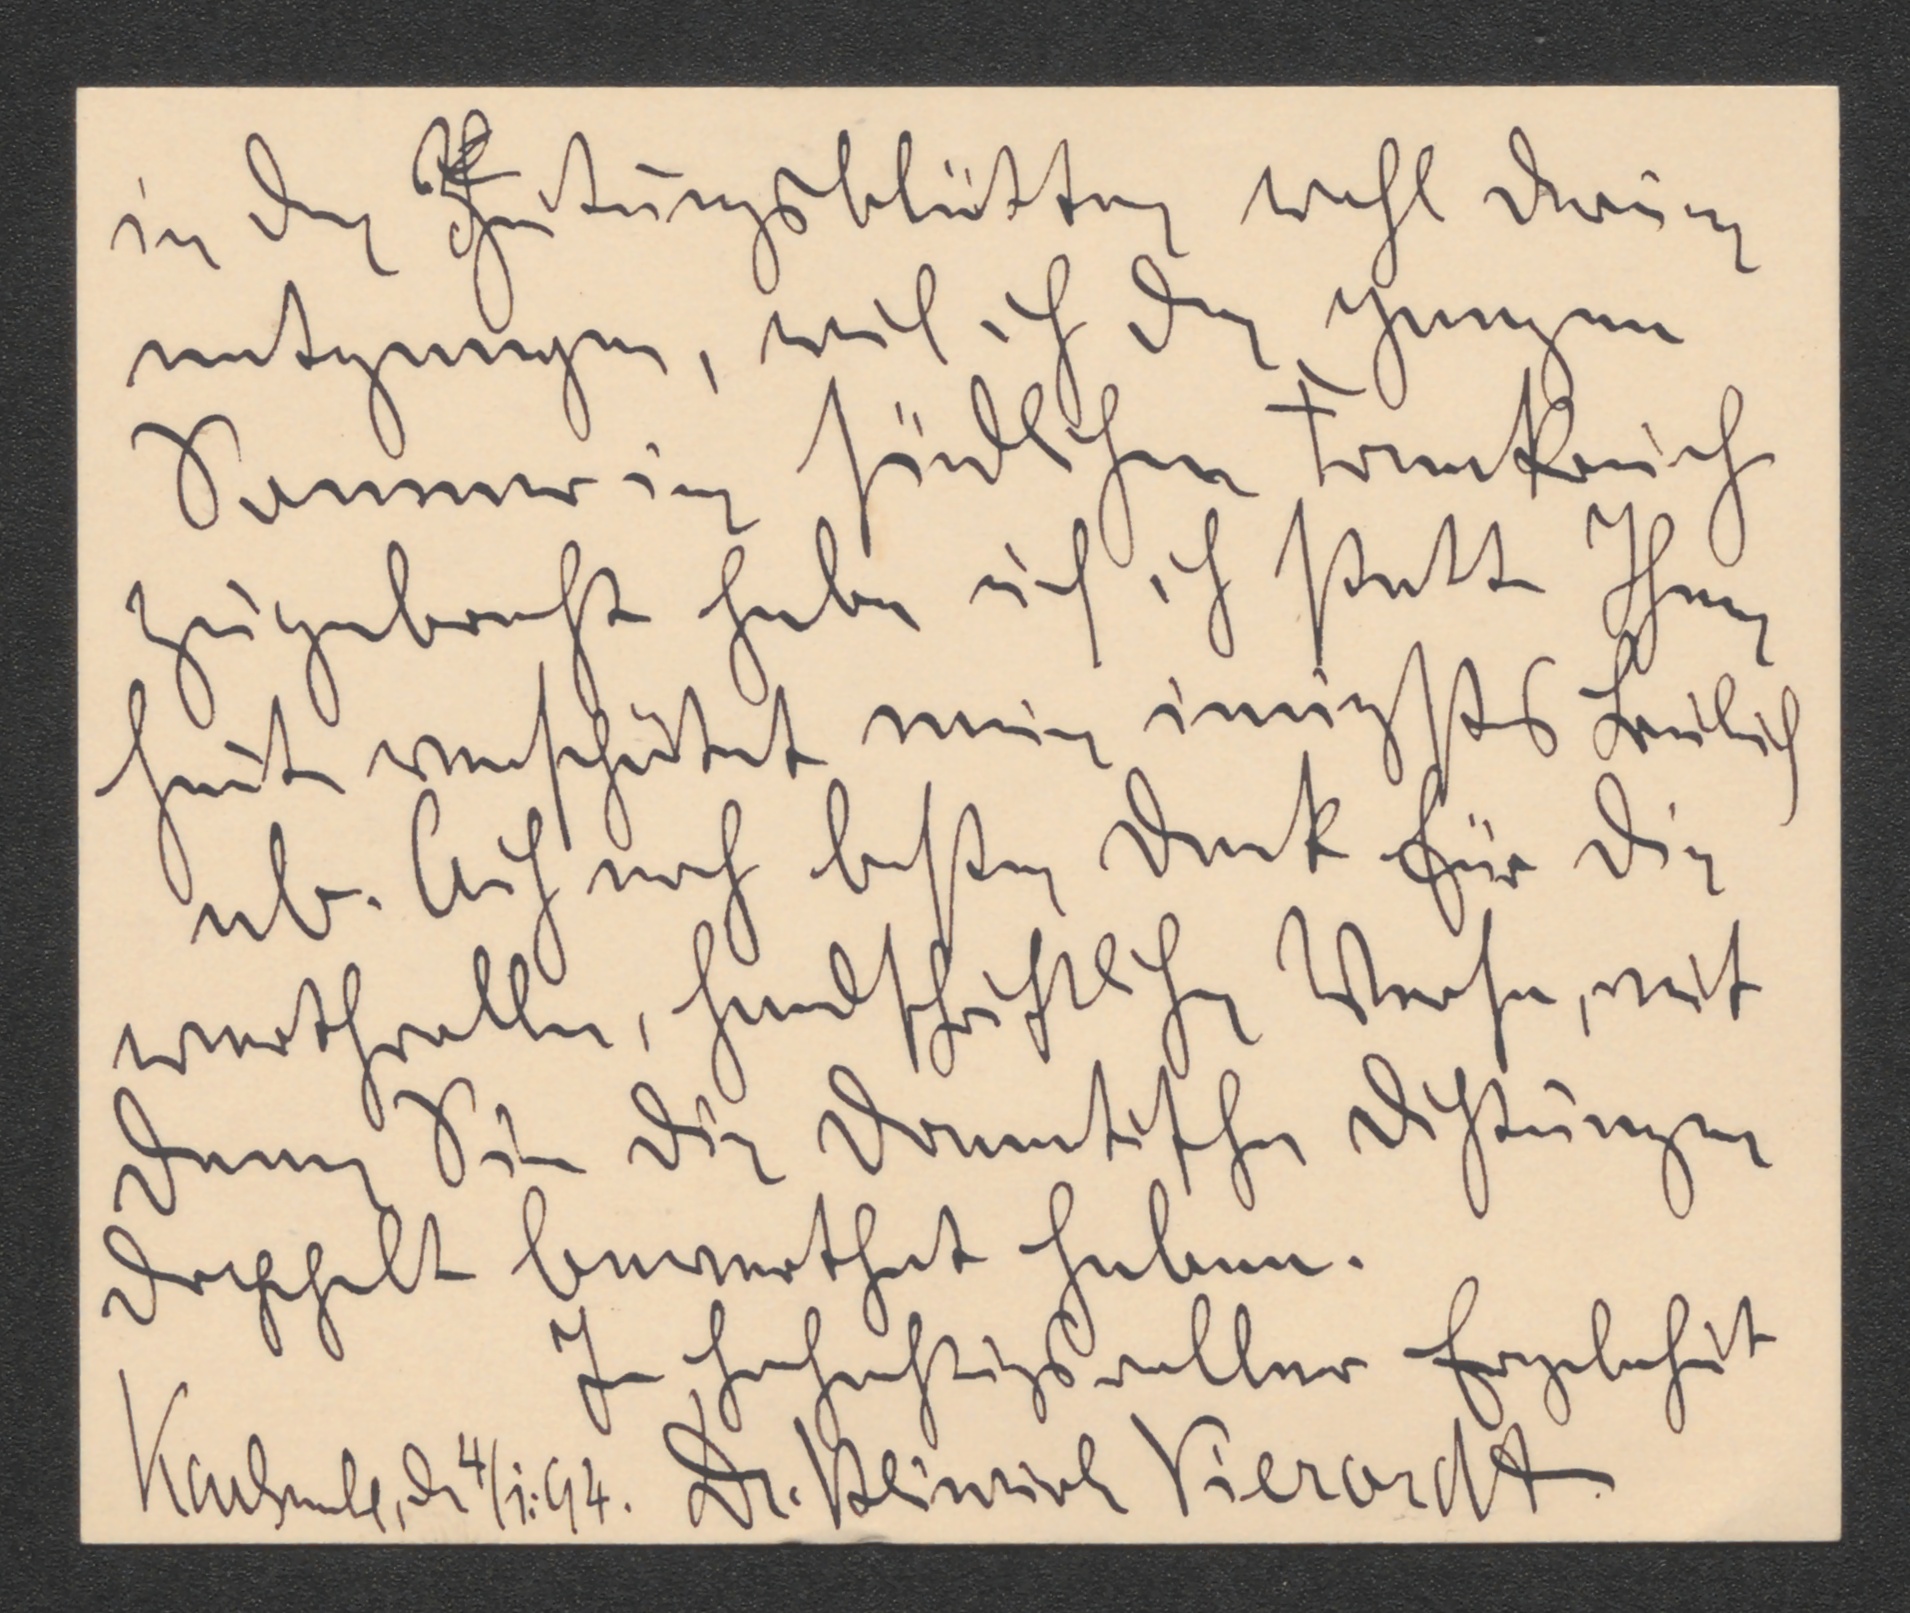 in den Zeitungsblättern wohl darum
entgangen, weil ich den ganzen
Sommer im südlichen Frankreich
zugebracht habe und ich statte Ihnen
heute verspätet mein innigstes Beileid
ab. Auch noch besten Dank für die
werthvollen, handschriftlichen Verse, mit
denen Sie die Dramatischen Dichtungen
doppelt bewerthet haben.
In hochachtungsvoller Ergebenheit
Karlsruhe, den 4/1. 94. Dr. Heinrich Vierordt.